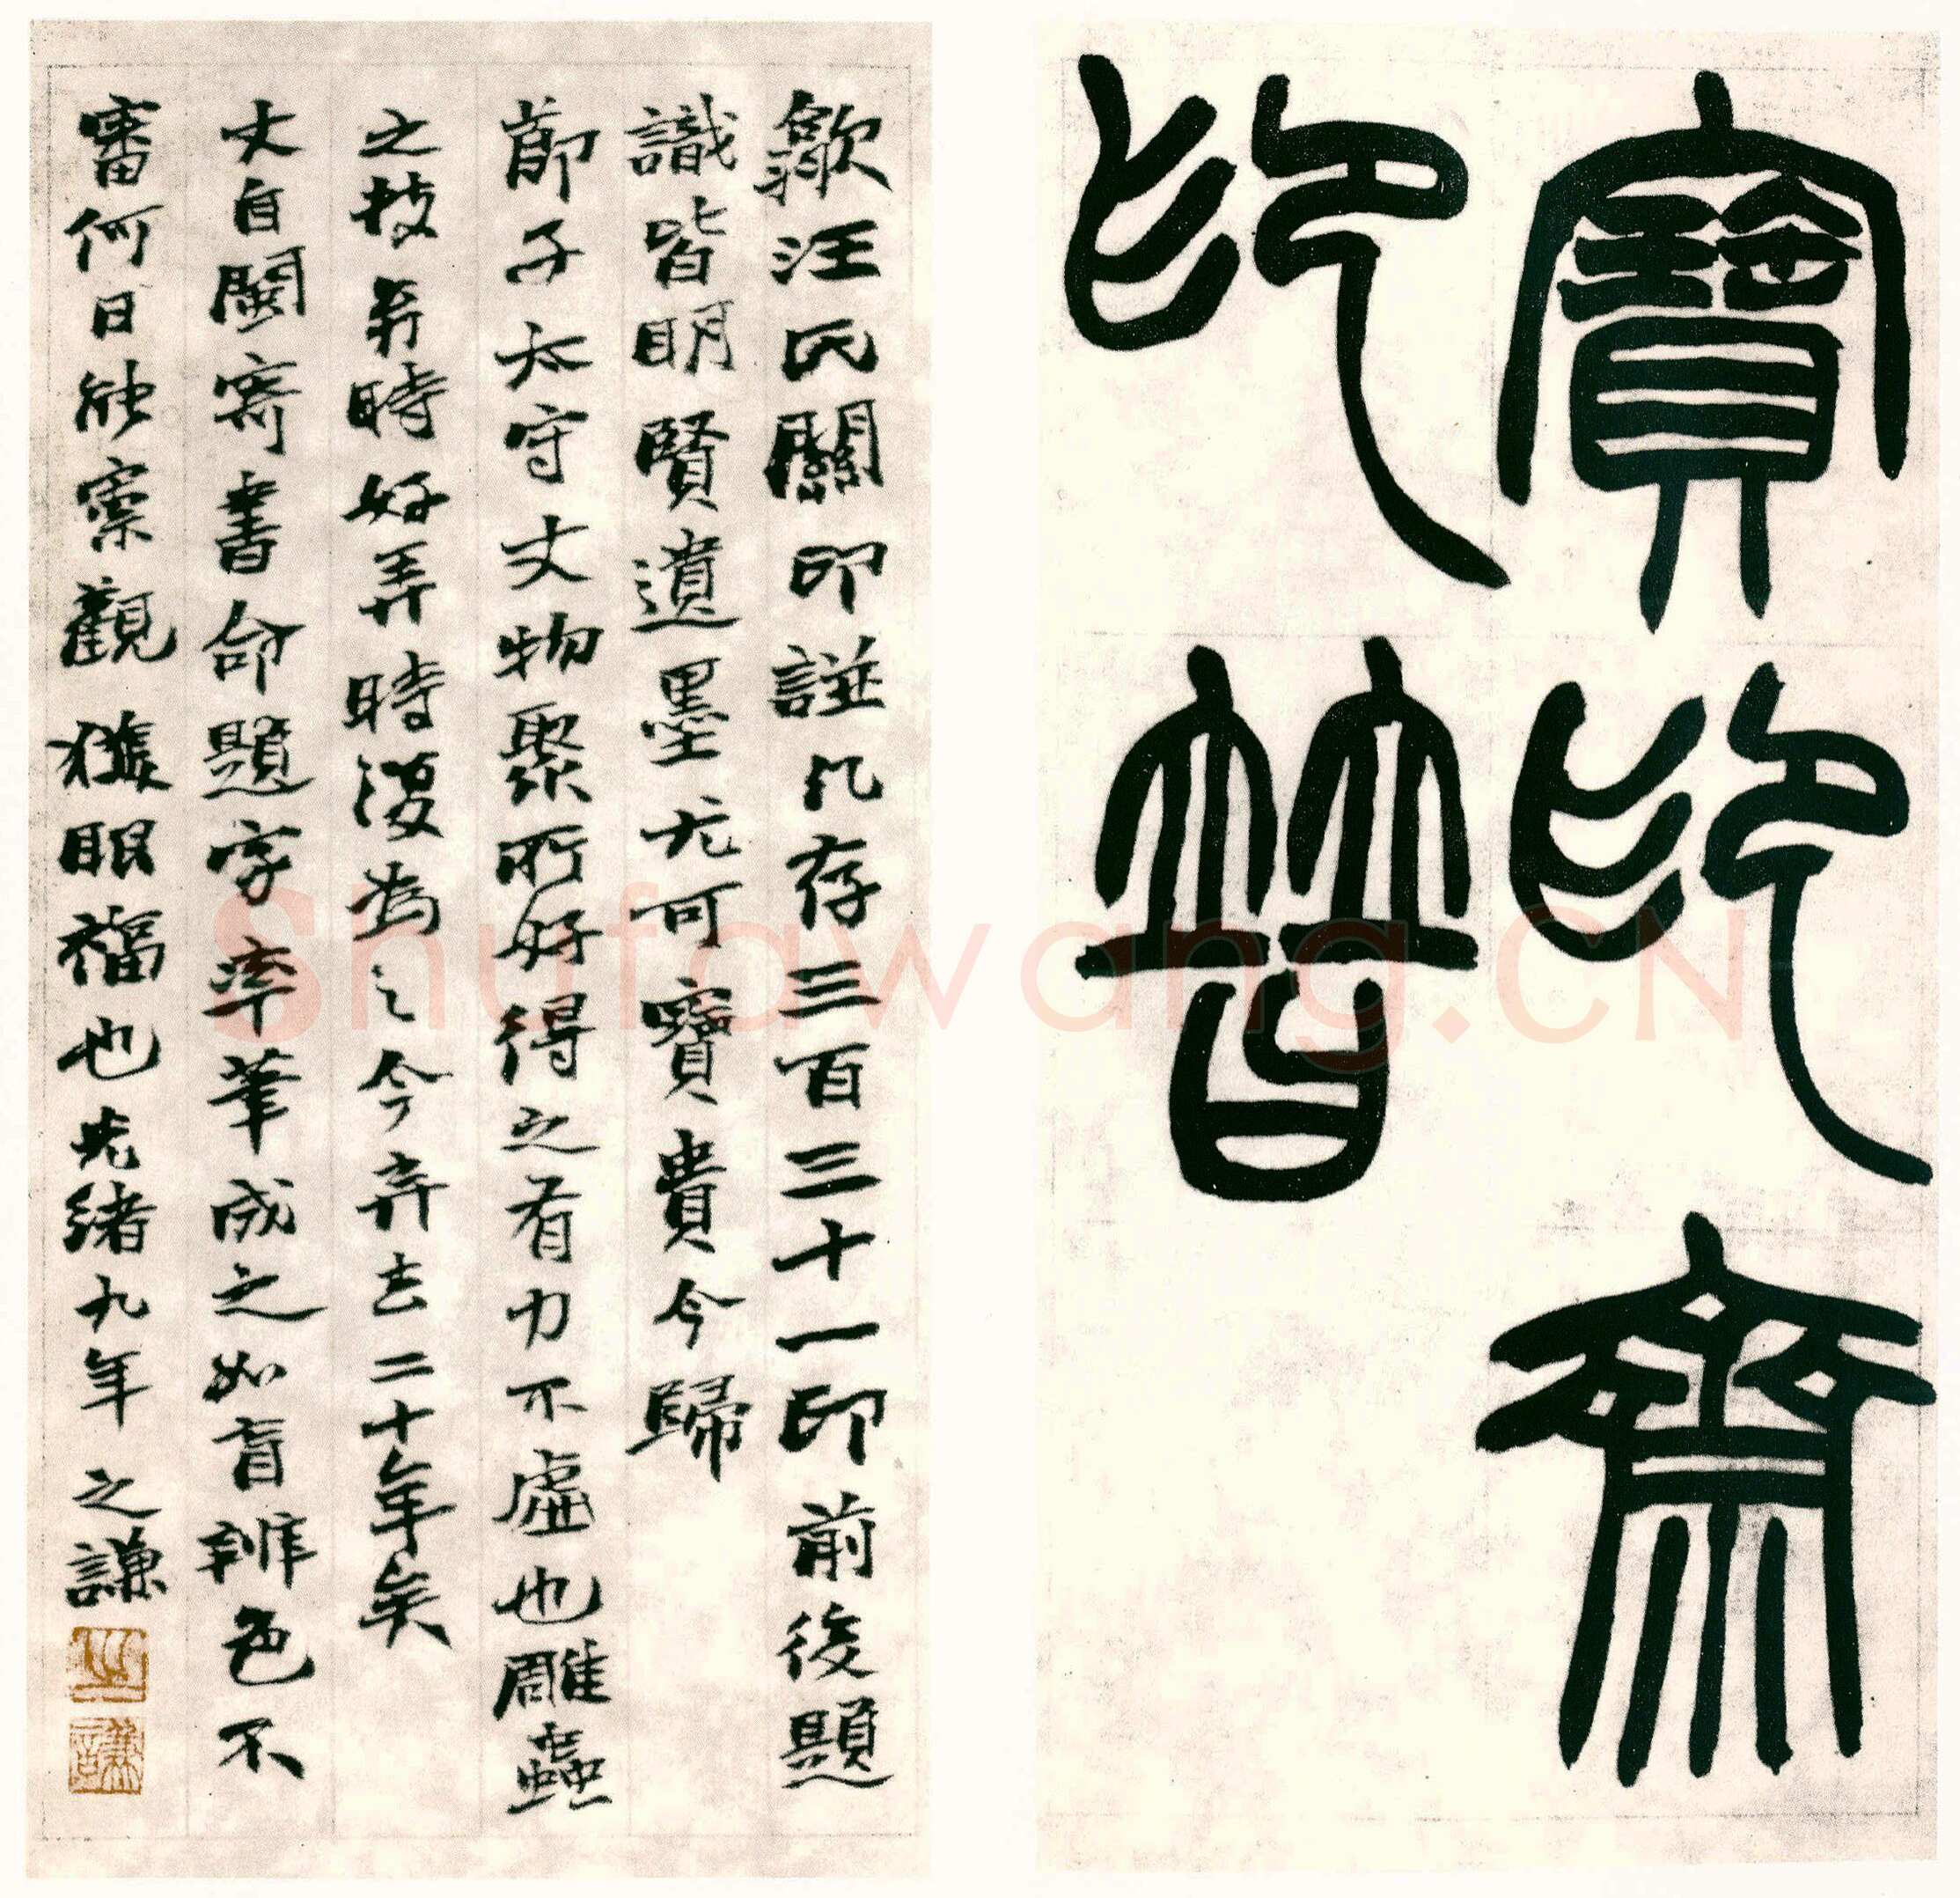 寶印齋
印普
歙汪氏關印諩凡存三百三十一印前後題
識皆明賢遺墨尤可寶貴今歸
節子太守丈物聚所好得之有力不虛也雕蟲
之技時好弄時復為之今弃去二十年矣
丈自閩寄書命題字率筆成之如盲辨色不
審何日能索觀獲眼福也光緒九年 之謙
之
謙